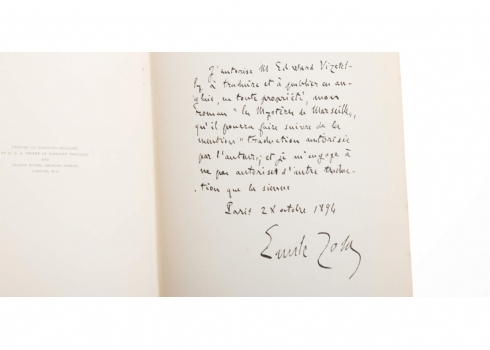 J'autorise M Edward Vizetel-
ly à traduire et à publier en an-
glais, en toute propriété, mon
roman "les Mystères de Marseille",
qu'il pourra faire suivre de la
mention: "traduction autorisée
par l'auteur; et je m'engage à
ne pas autoriser d'autre traduc-
tion que la sienne
Paris 28 octobre 1894
Emile Zola